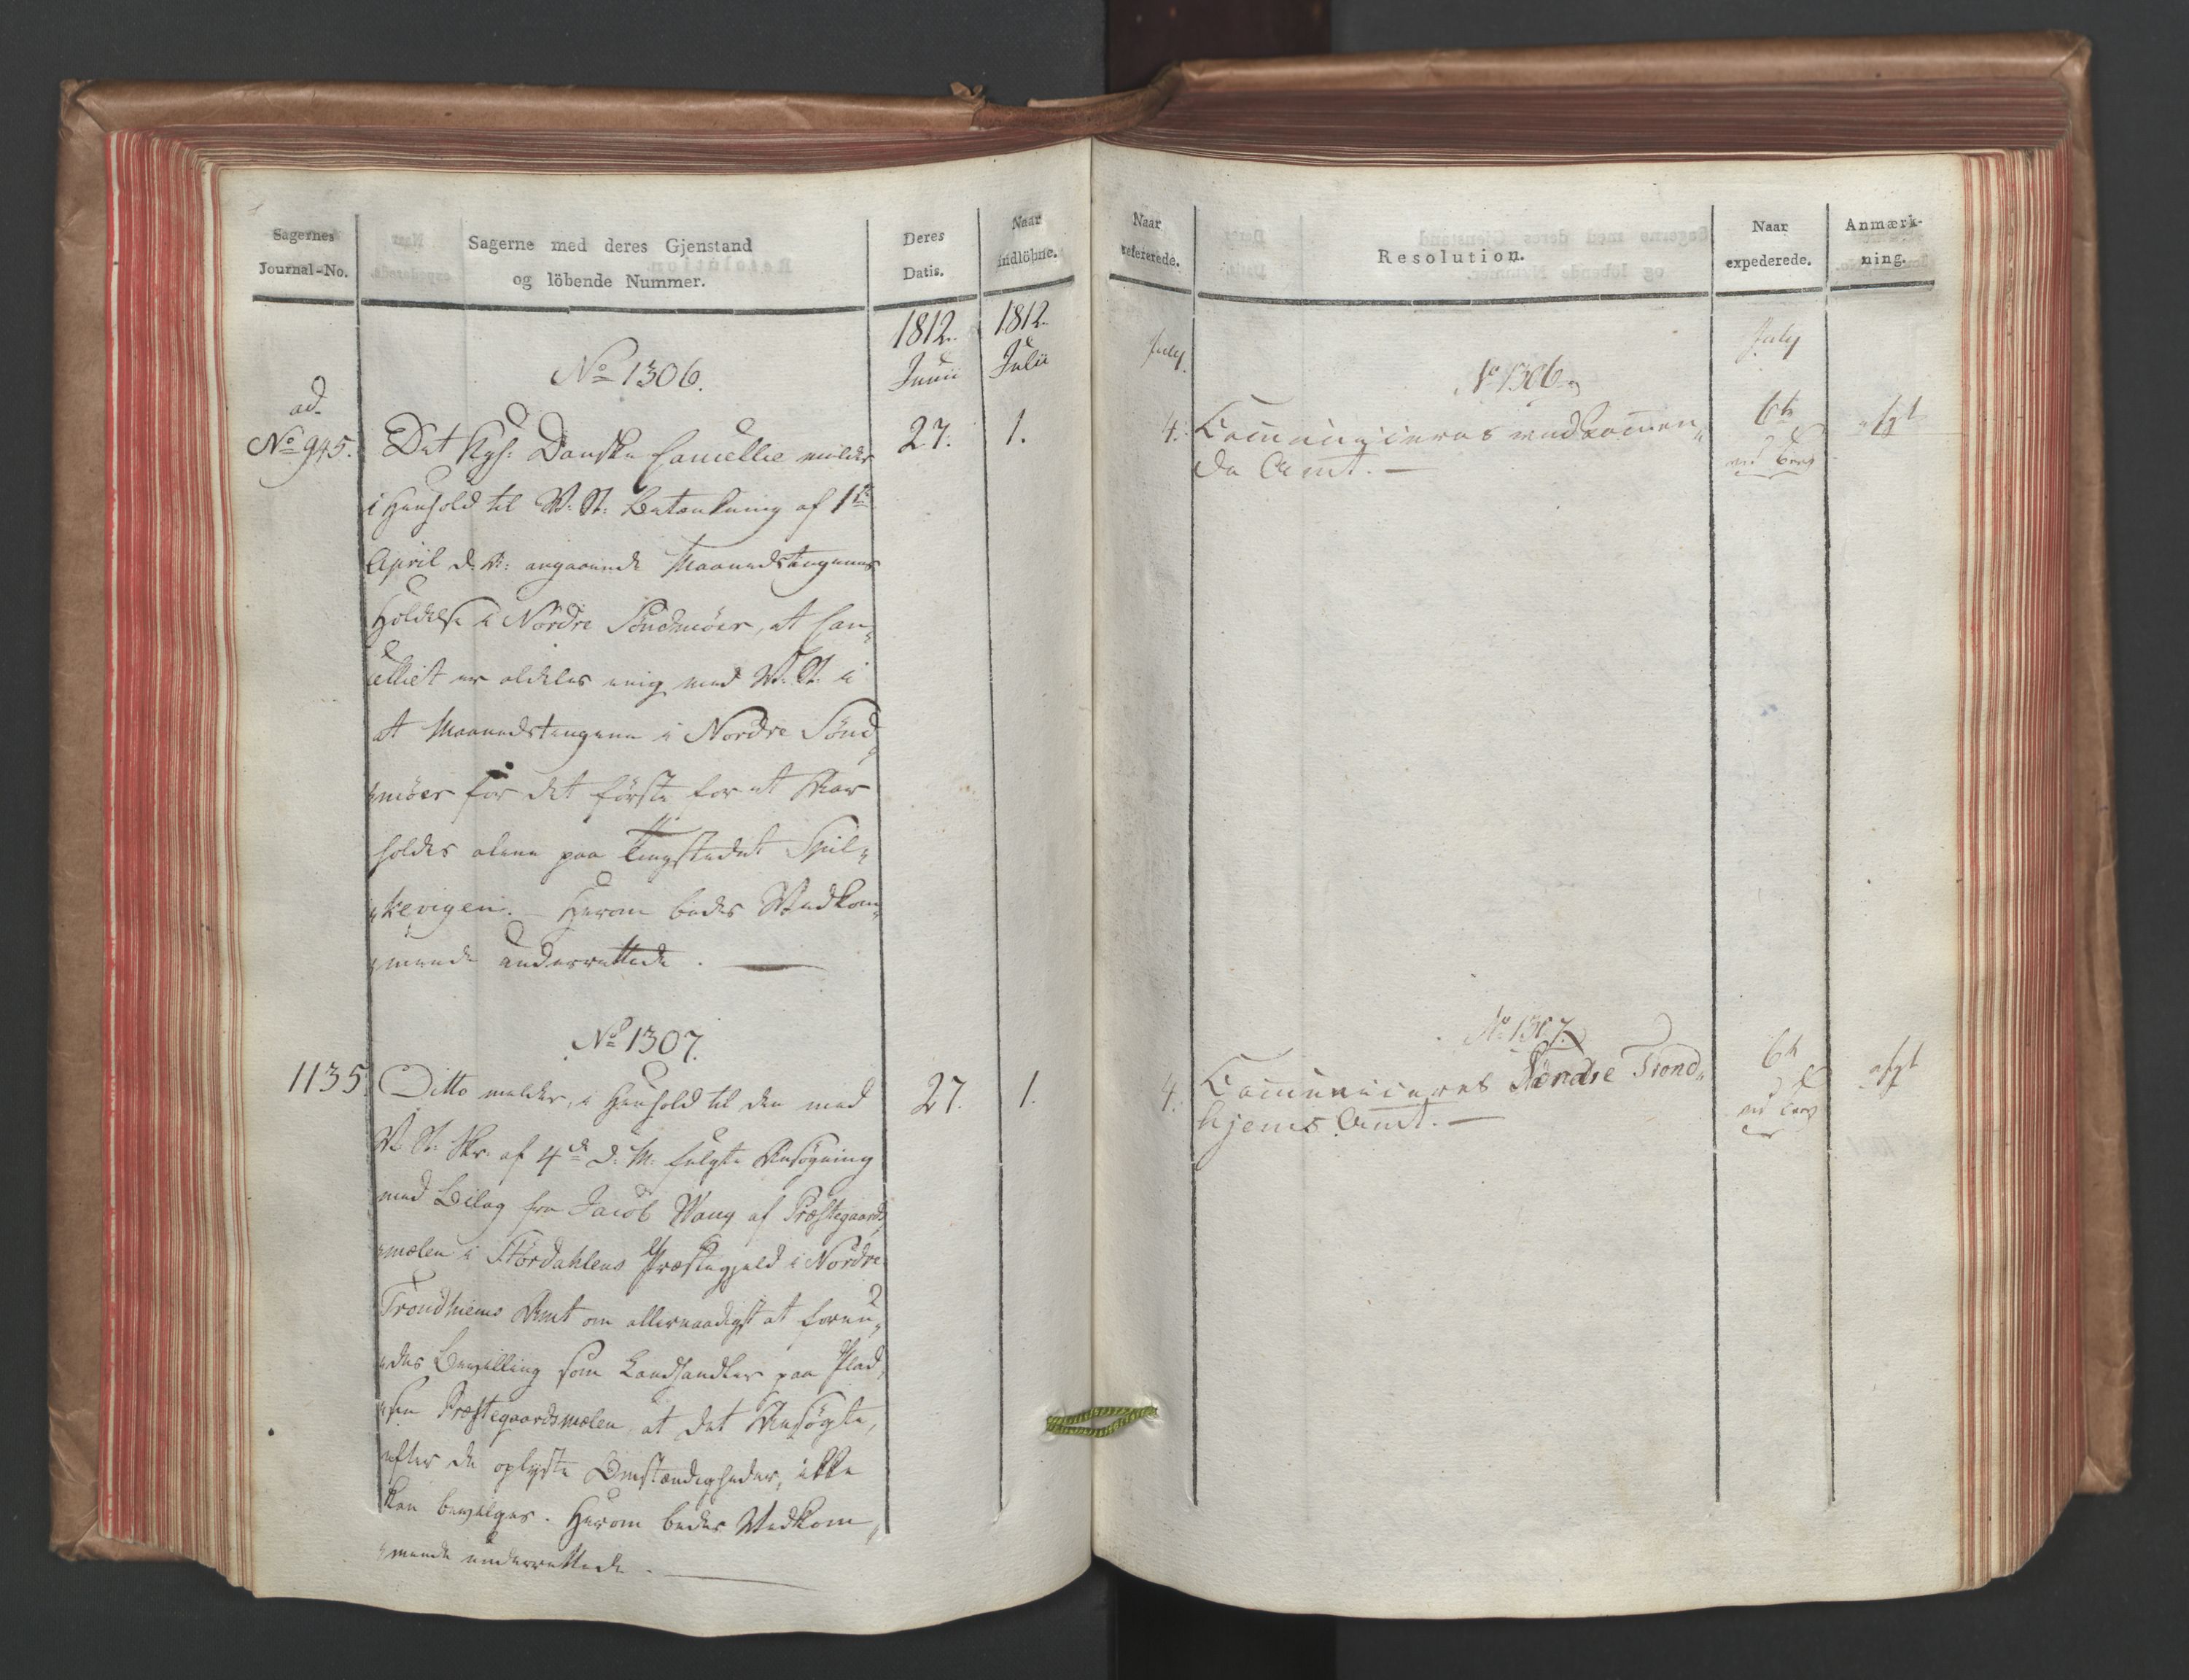 Sagernes
Journal-No.
Sagerne med deres Gjenstand
og löbende Nummer.
Deres
Datis.
Naar
indlöbne.
1812.
Junii
1812.
Julii
No 1306.
ad.
No 945.
Det Kgl: Danske Cancellie melder
27.
1.
i Henhold til V. St: Betænkning af 1ste
April d. A: angaaende Maanedstingenes
Holdelse i Nordre Söndmöer, at Can„
celliet er aldeles enig med V. St. i
at Maanedstingene i Nordre Sönd„
„möer for det förste for et Aar
holdes alene paa Tingstedet Spiel„
„kevigen. Herom bedes Vedkom„
„mende underrettede.
No 1307.
1135.
Ditto melder, i Henhold til den med
27.
1.
V. St: Skr. af 4de d. M. fulgte Ansögning
med Bilag fra Jacob Wang af Præstegaards„
„mælen i Størdahlens Præstegjeld i Nordre
Trondhiems Amt om allernaadigst at forun„
„des Bevilling som Landhandler paa Plad„
„sen Præstegaardsmælen, at det Ansøgte,
efter de oplyste Omstændigheder, ikke
kan bevilges. Herom bedes Vedkom„
„mende underrettede.
Naar
refererede.
Resolution.
Naar
expederede.
Anmærk-
ning.
July
July
No 1306.
4.
Communiceres vedkommen„
de Amt.
6te
afgt
No 1307.
4.
Communiceres Söndre Trond„
hjems Amt.
6te
afgt